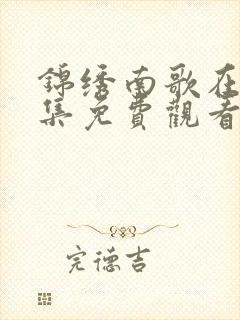 錦绣南歌在
集免費觀看
完德吉